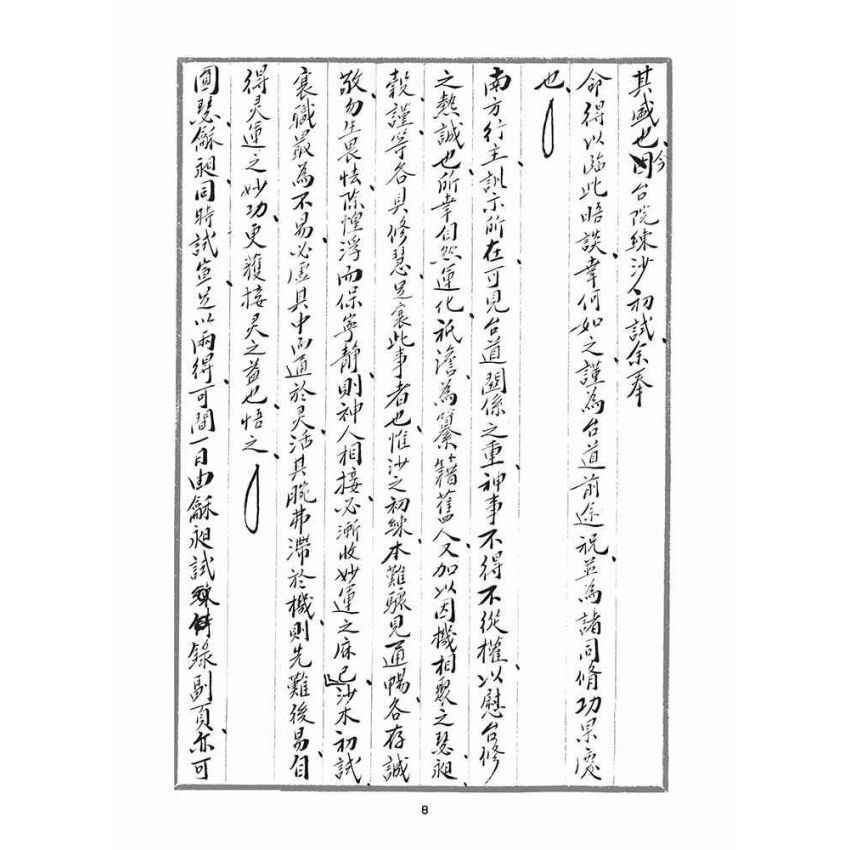 其盛也、今因台院練沙初試、余奉
命得以臨此晤談、幸何如之、謹為台道前途祝、並為諸同脩功果慶
也、
南方行主訓示所在、可見台道關係之重、神事不得不從權、以慰台修
之熱誠也、所幸自然運化、祇澹為纂籍舊人、又加以因機相聚之慧昶
穀、謹等各具修慧、足襄此事者也、惟沙之初練、本難驟見通暢、各存誠
敬、勿生畏怯、除惶浮而保寧靜、則神人相接、必漸收妙運之庥已、沙木初試、
襄職最為不易、必虛其中而通於灵活、其腕弗滯於機、則先難後易、自
得灵運之妙功、更獲接灵之益也、悟之、
圓慧龢昶同時試宣、足以兩得、可間一日由龢昶試練、侍錄副頁、亦可
8